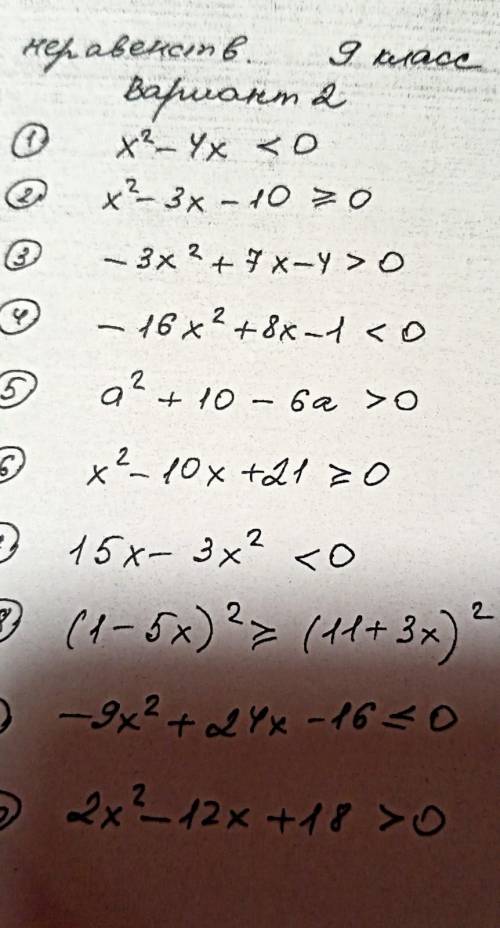 неравенств. 9 класс
Вариант 2
① x² - 4x < 0
② x² - 3x - 10 ⩾ 0
③ - 3x² + 7x - 4 > 0
④ - 16x² + 8x - 1 < 0
⑤ a² + 10 - 6a > 0
⑥ x² - 10x + 21 ⩾ 0
15x - 3x² < 0
⑧ (1 - 5x)² ⩾ (11 + 3x)²
- 9x² + 24x - 16 ⩽ 0
2x² - 12x + 18 > 0